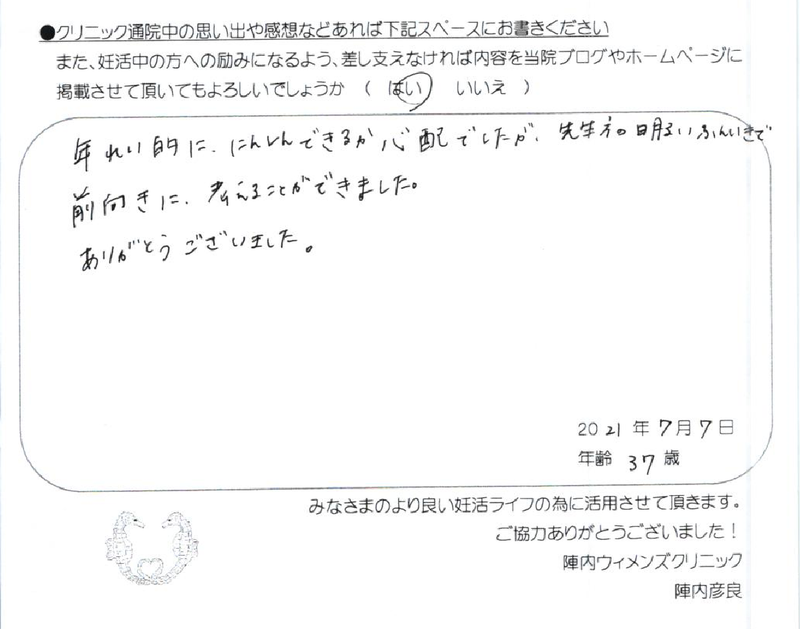 ●クリニック通院中の思い出や感想などあれば下記スペースにお書きください
また、妊活中の方への励みになるよう、差し支えなければ内容を当院ブログやホームページに
掲載させて頂いてもよろしいでしょうか ( はい いいえ )
年れい的に、にんしんできるか心配でしたが、先生方の明るいふんいきで
前向きに、考えることができました。
ありがとうございました。
2021年7月7日
年齢 37歳
みなさまのより良い妊活ライフの為に活用させて頂きます。
ご協力ありがとうございました！
陣内ウィメンズクリニック
陣内彦良